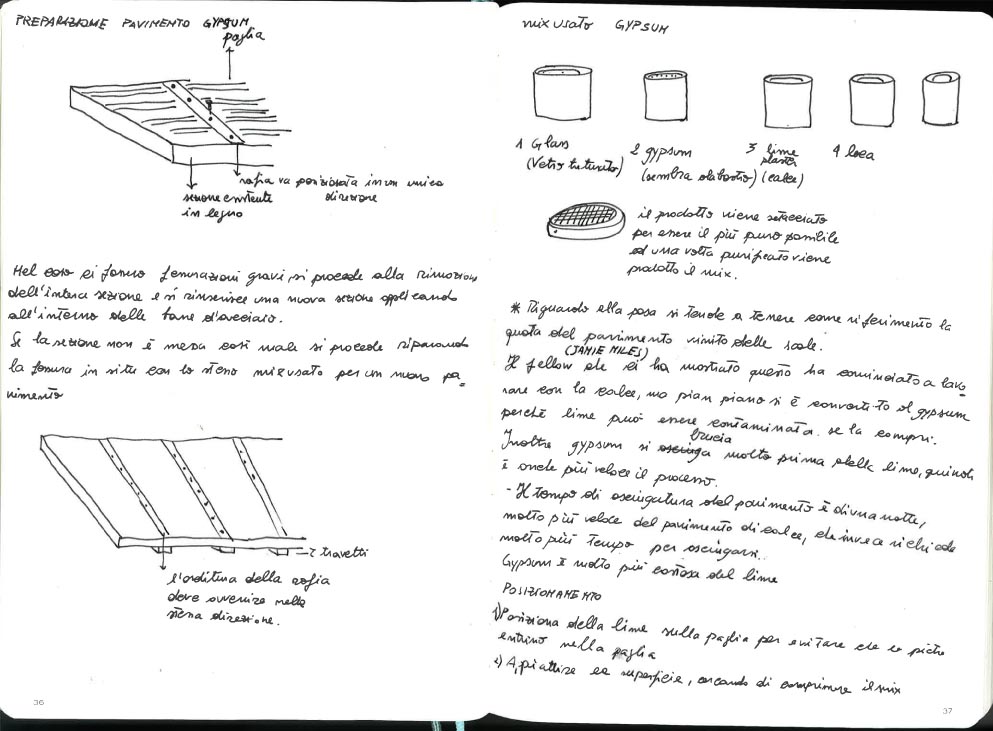 PREPARAZIONE PAVIMENTO GYPSUM
paglia
rafia va posizionata in un unica
direzione
sezione esistente
in legno
Nel caso ci siano fessurazioni gravi, si procede alla rimozione
dell'intera sezione e si rinserisce una nuova sezione applicando
all'interno delle barre d'acciaio.
Se la sezione non è messa così male si procede riparando
la fessura in situ con lo stesso mix usato per un nuovo pa=
vimento
travetti
l'orditura della rafia
deve avvenire nella
stessa direzione.
36
mix usato GYPSUM
1 Glass
(Vetro triturato)
2 gypsum
(sembra alabastro)
3 lime
plaster
(calce)
4 loca
il prodotto viene setacciato
per essere il più puro possibile
ed una volta purificato viene
prodotto il mix.
* Riguardo alla posa si tende a tenere come riferimento la
quota del pavimento vinito delle scale.
(JAMIE MILES)
Il fellow che ci ha mostrato questo ha cominciato a lavo=
rare con la calce, ma pian piano si è convertito al gypsum
perchè lime può essere contaminata se la compri.
brucia
Inoltre gypsum si asciuga molto prima della lime, quindi
è anche più veloce il processo.
- Il tempo di asciugatura del pavimento è di una notte,
molto più veloce del pavimento di calce, che invece richiede
molto più tempo per asciugarsi.
Gypsum è molto più costosa del lime
POSIZIONAMENTO
1) Posiziona della lime sulla paglia per evitare che le pietre
entrino nella paglia
2) Appiattire la superficie, cercando di comprimere il mix
37